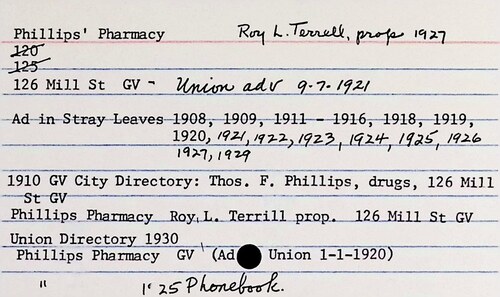 Phillips' Pharmacy Roy L. Terrell, prop 1927
120
125
126 Mill St GV - Union adv 9-7-1921
Ad in Stray Leaves 1908, 1909, 1911 - 1916, 1918, 1919,
1920, 1921, 1922, 1923, 1924, 1925, 1926
1927, 1929
1910 GV City Directory: Thos. F. Phillips, drugs, 126 Mill
St GV
Phillips Pharmacy Roy L. Terrill prop. 126 Mill St GV
Union Directory 1930
Phillips Pharmacy GV (Ad Union 1-1-1920)
" 1" 25 Phonebook.